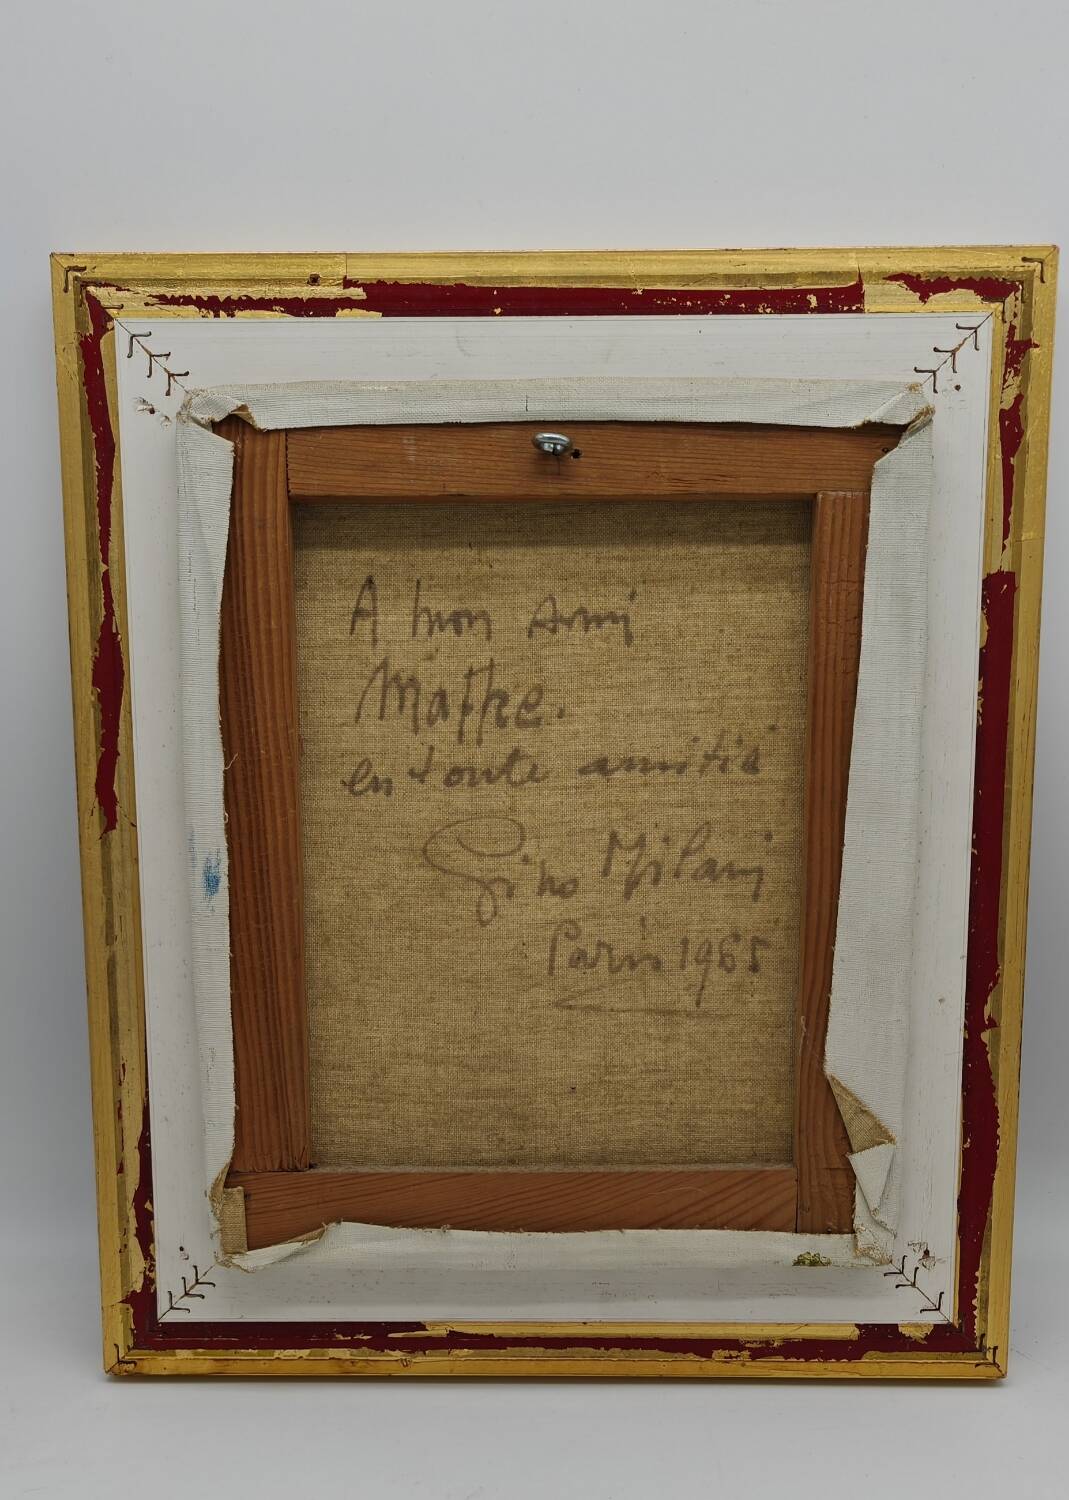 A mon Ami
Maffre.
en toute amitié
Gino Milani
Paris 1965